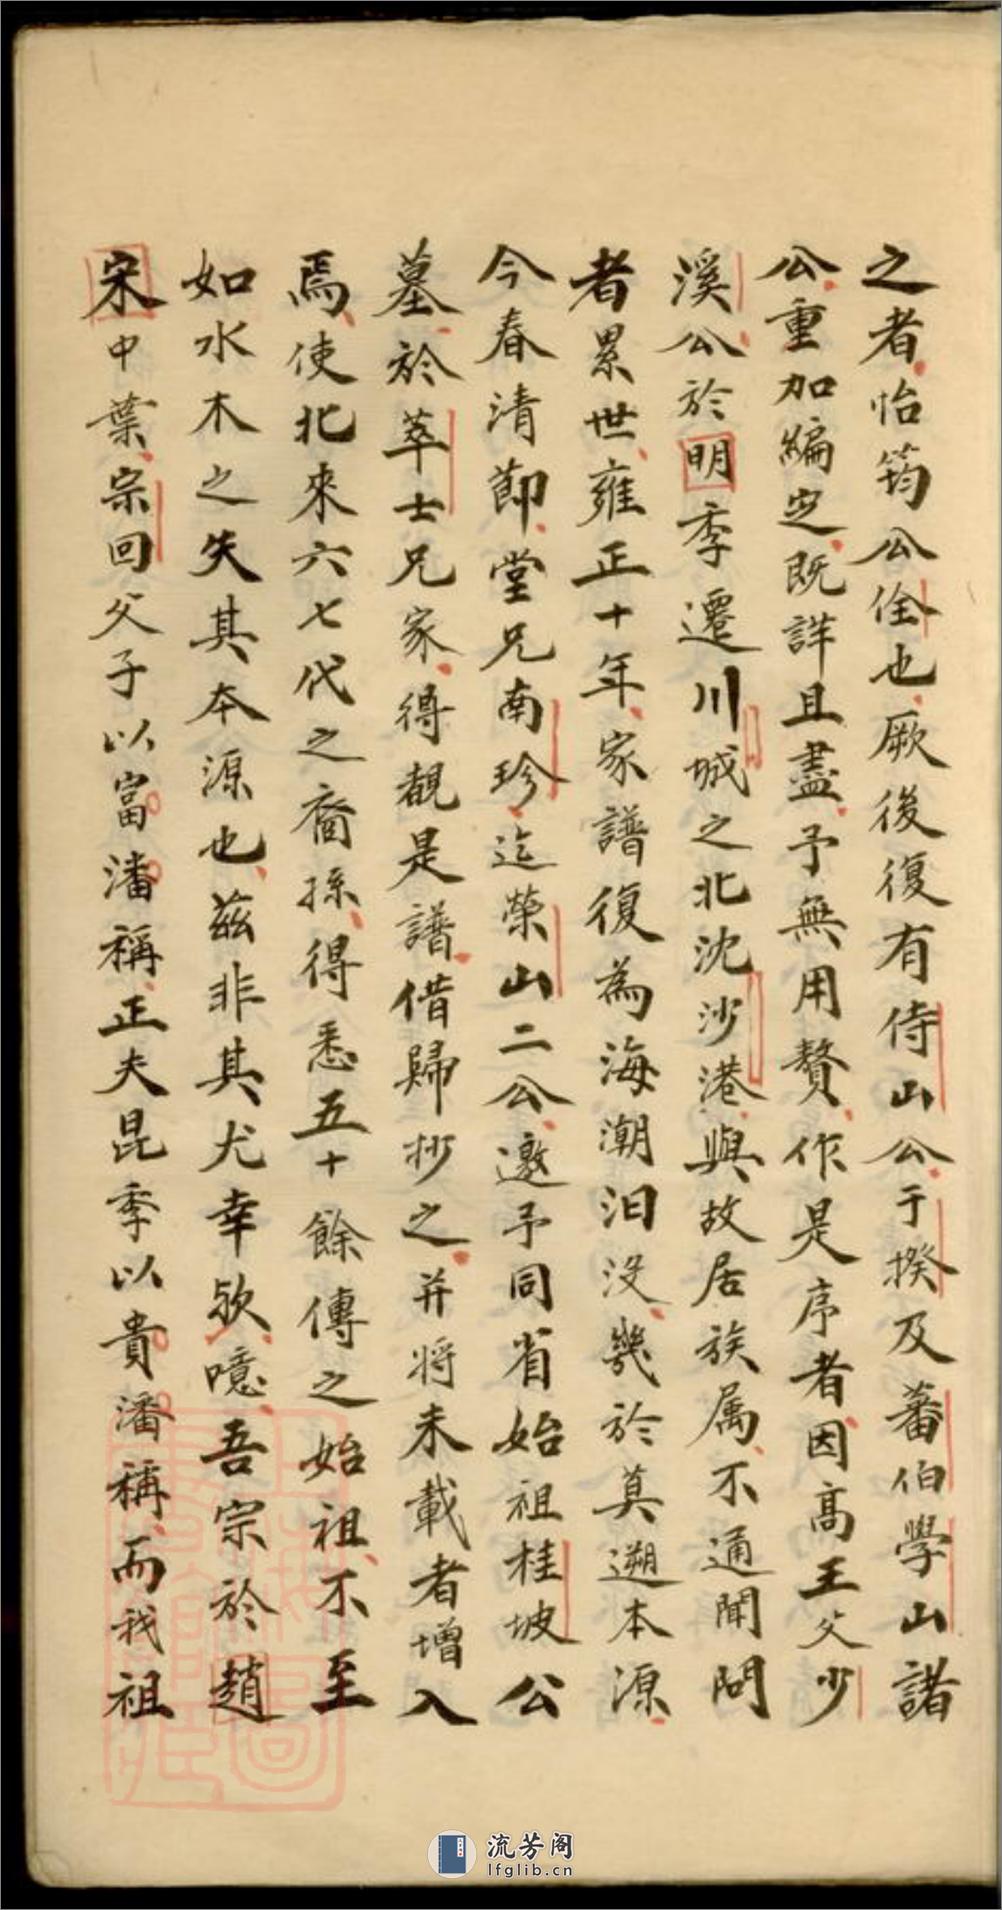 之者怡筠公佺也厥後復有侍山公于揆及蕃伯學山諸
公重加編定既詳且盡予無用贅作是序者因高王父少
溪公於明季遷川城之北沈沙港與故居族属不通聞問
者累世雍正十年家譜復為海潮汩没幾於莫遡本源
今春清節堂兄南珍迄榮山二公邀予同省始祖桂坡公
墓於萃士兄家得覩是譜借歸抄之并将未載者增入
焉使北來六七代之裔孫得悉五十餘傳之始祖不至
如水木之失其本源也茲非其尤幸欤噫吾宗於趙
宋中葉宗回父子以富潘稱正夫昆季以貴潘稱而我祖
流芳阁
lfglib.cn